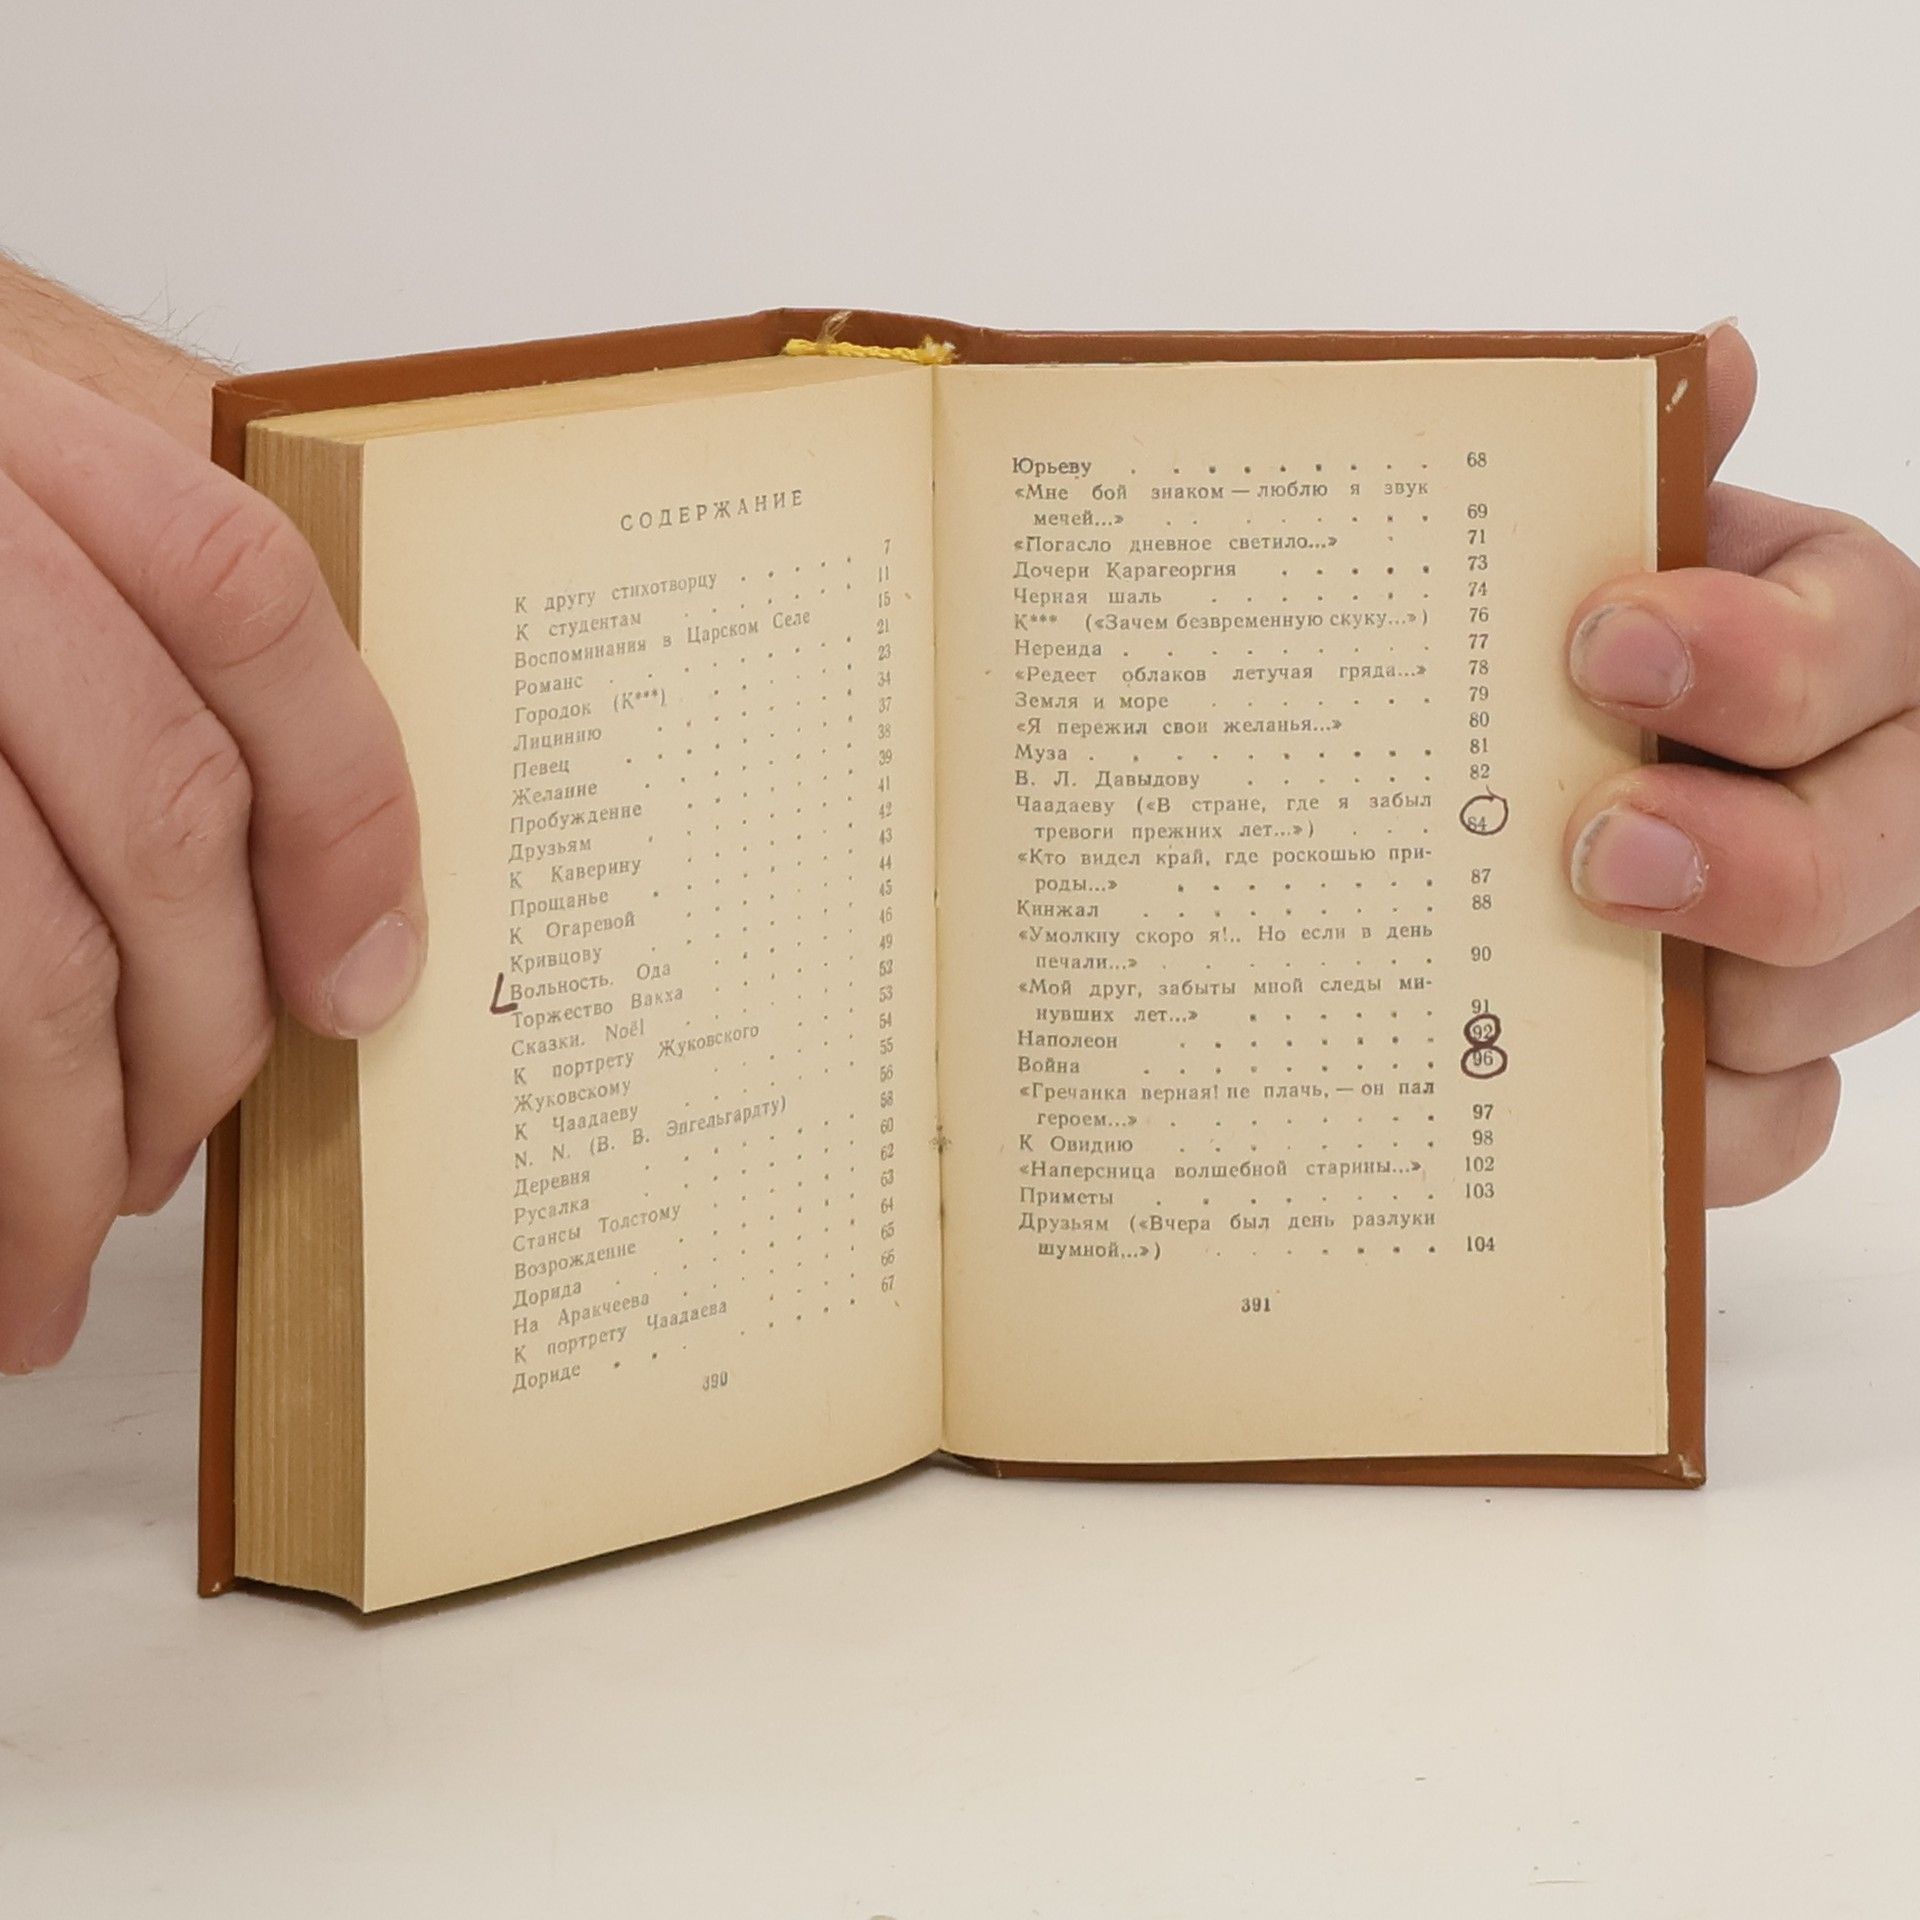 СОДЕРЖАНИЕ
К другу стихотворцу . . . . . 7
К студентам . . . . . . 11
Воспоминания в Царском Селе 15
Романс . . . . . . . 21
Городок (К***) . . . . 23
Лицинию . . . . . 34
Певец . . . . . . 37
Желание . . . . . . 38
Пробуждение . . . . . 39
Друзьям . . . . . 41
К Каверину . . . . 42
Прощанье . . . . . 43
К Огаревой . . . . 44
Кривцову . . . . . 45
Вольность. Ода . . . . 46
Торжество Вакха . . . . 49
Сказки. Noël . . . . 52
К портрету Жуковского . . 53
Жуковскому . . . . 54
К Чаадаеву . . . . 55
N. N. (В. В. Энгельгардту) 56
Деревня . . . . . 58
Русалка . . . . . 60
Стансы Толстому . . . . 62
Возрождение . . . . . 63
Дорида . . . . . 64
На Аракчеева . . . . 65
К портрету Чаадаева . . 66
Дориде . . . . . . 67
390
Юрьеву . . . . . . . . . 68
«Мне бой знаком — люблю я звук
мечей...» . . . . . . . . 69
«Погасло дневное светило...» . 71
Дочери Карагеоргия . . . . . 73
Черная шаль . . . . . . . 74
К*** («Зачем безвременную скуку...») 76
Нереида . . . . . . . . . 77
«Редеет облаков летучая гряда...» 78
Земля и море . . . . . . . 79
«Я пережил свои желанья...» 80
Муза . . . . . . . . . . 81
В. Л. Давыдову . . . . . . 82
Чаадаеву («В стране, где я забыл
тревоги прежних лет...») . . . 84
«Кто видел край, где роскошью при-
роды...» . . . . . . . . 87
Кинжал . . . . . . . . . 88
«Умолкну скоро я!.. Но если в день
печали...» . . . . . . . . 90
«Мой друг, забыты мной следы ми-
нувших лет...» . . . . . . 91
Наполеон . . . . . . . . 92
Война . . . . . . . . . 96
«Гречанка верная! не плачь, — он пал
героем...» . . . . . . . . 97
К Овидию . . . . . . . . 98
«Наперсница волшебной старины...» 102
Приметы . . . . . . . . 103
Друзьям («Вчера был день разлуки
шумной...») . . . . . . . 104
391